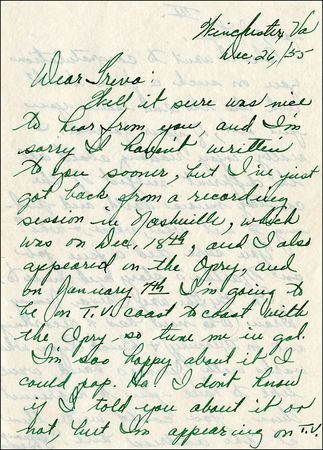 Winchester, Va
Dec, 26,/55
Dear Treva:
Well it sure was nice
to hear from you, and I'm
sorry I haven't written
to you sooner, but I've just
got back from a recording
session in Nashville, which
was on Dec. 18th, and I also
appeared on the Opry, and
on January 7th I'm going to
be on T.V. coast to coast with
the Opry - so tune me in gal.
I'm soo happy about it I
could pop. Ha I don't know
if I told you about it or
not, but I'm appearing on T.V.